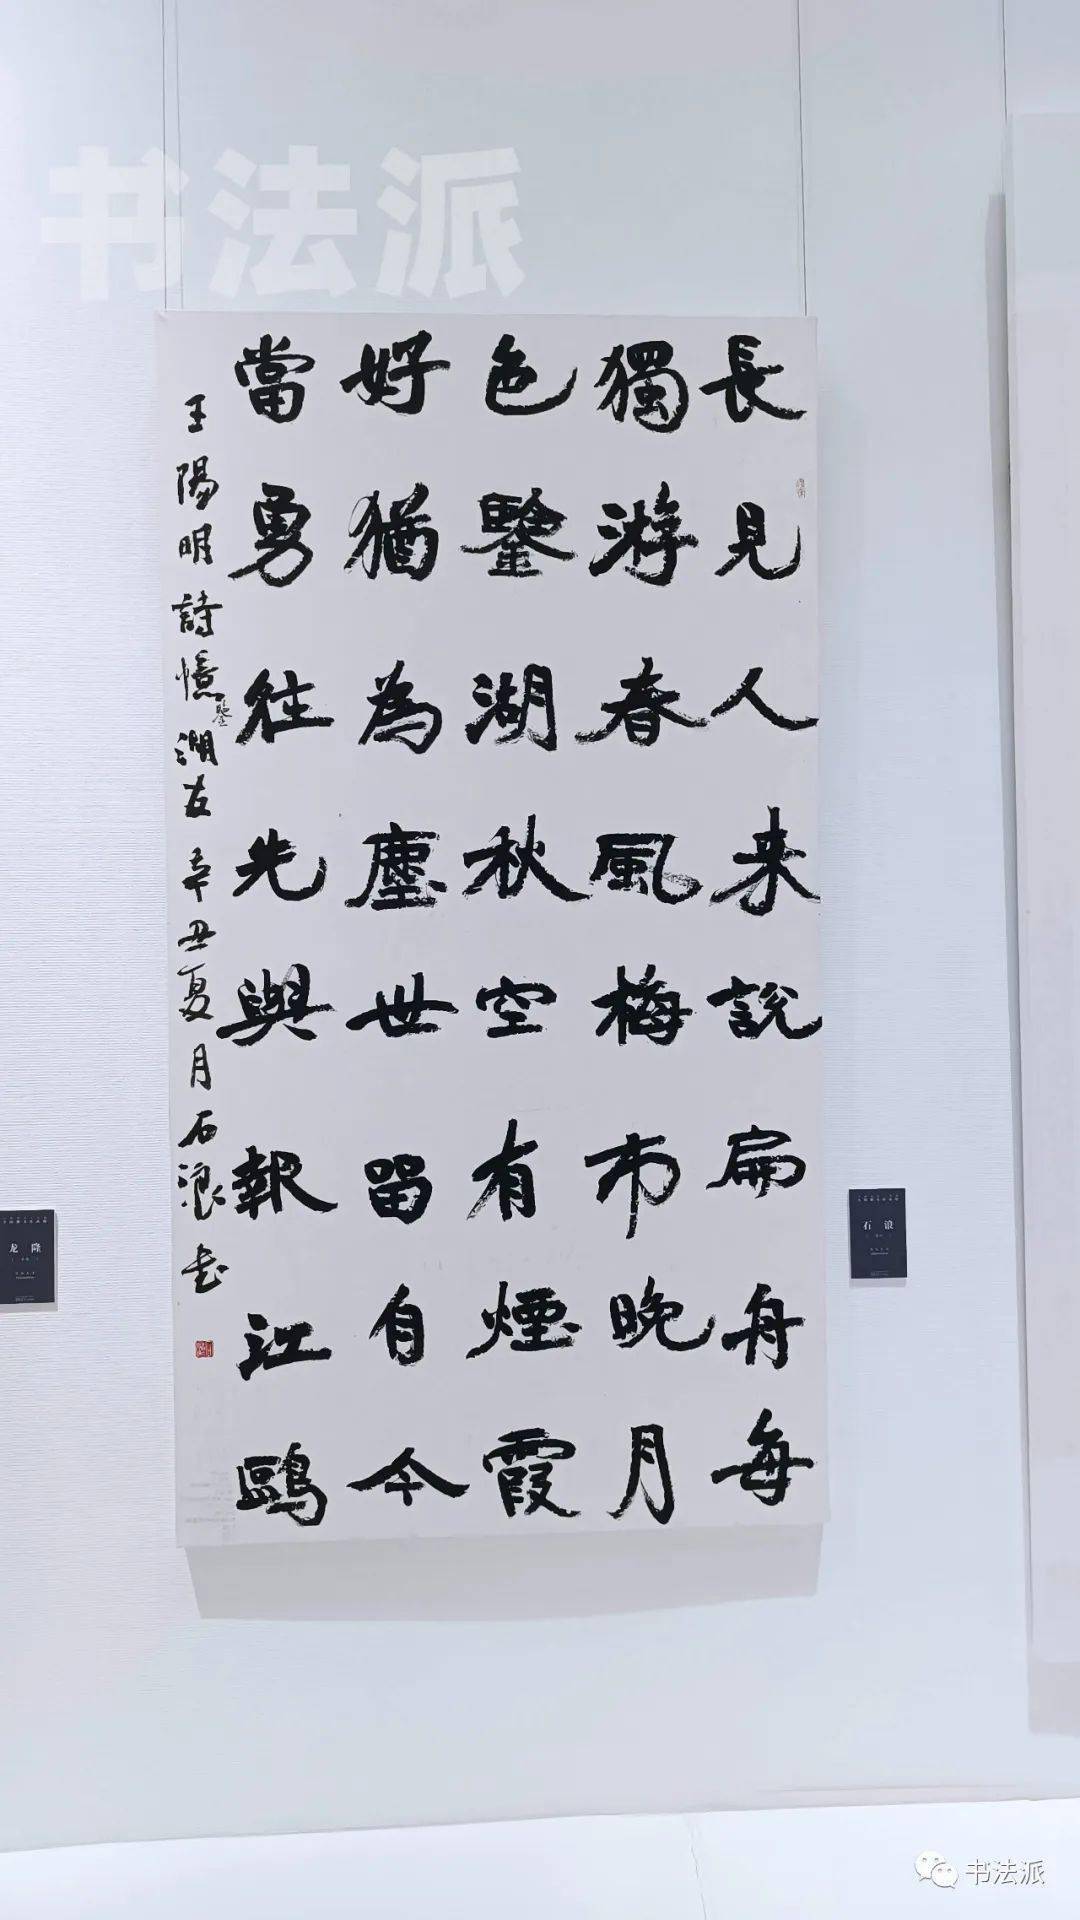 书法派
長見人来説扁舟每
獨游春風梅市晚月
色鑒湖秋空有煙霞
好猶為塵世留自今
當勇往先與報江鷗
王陽明詩憶鑒湖友辛丑夏月石浪書
龙隆
石浪
书法派